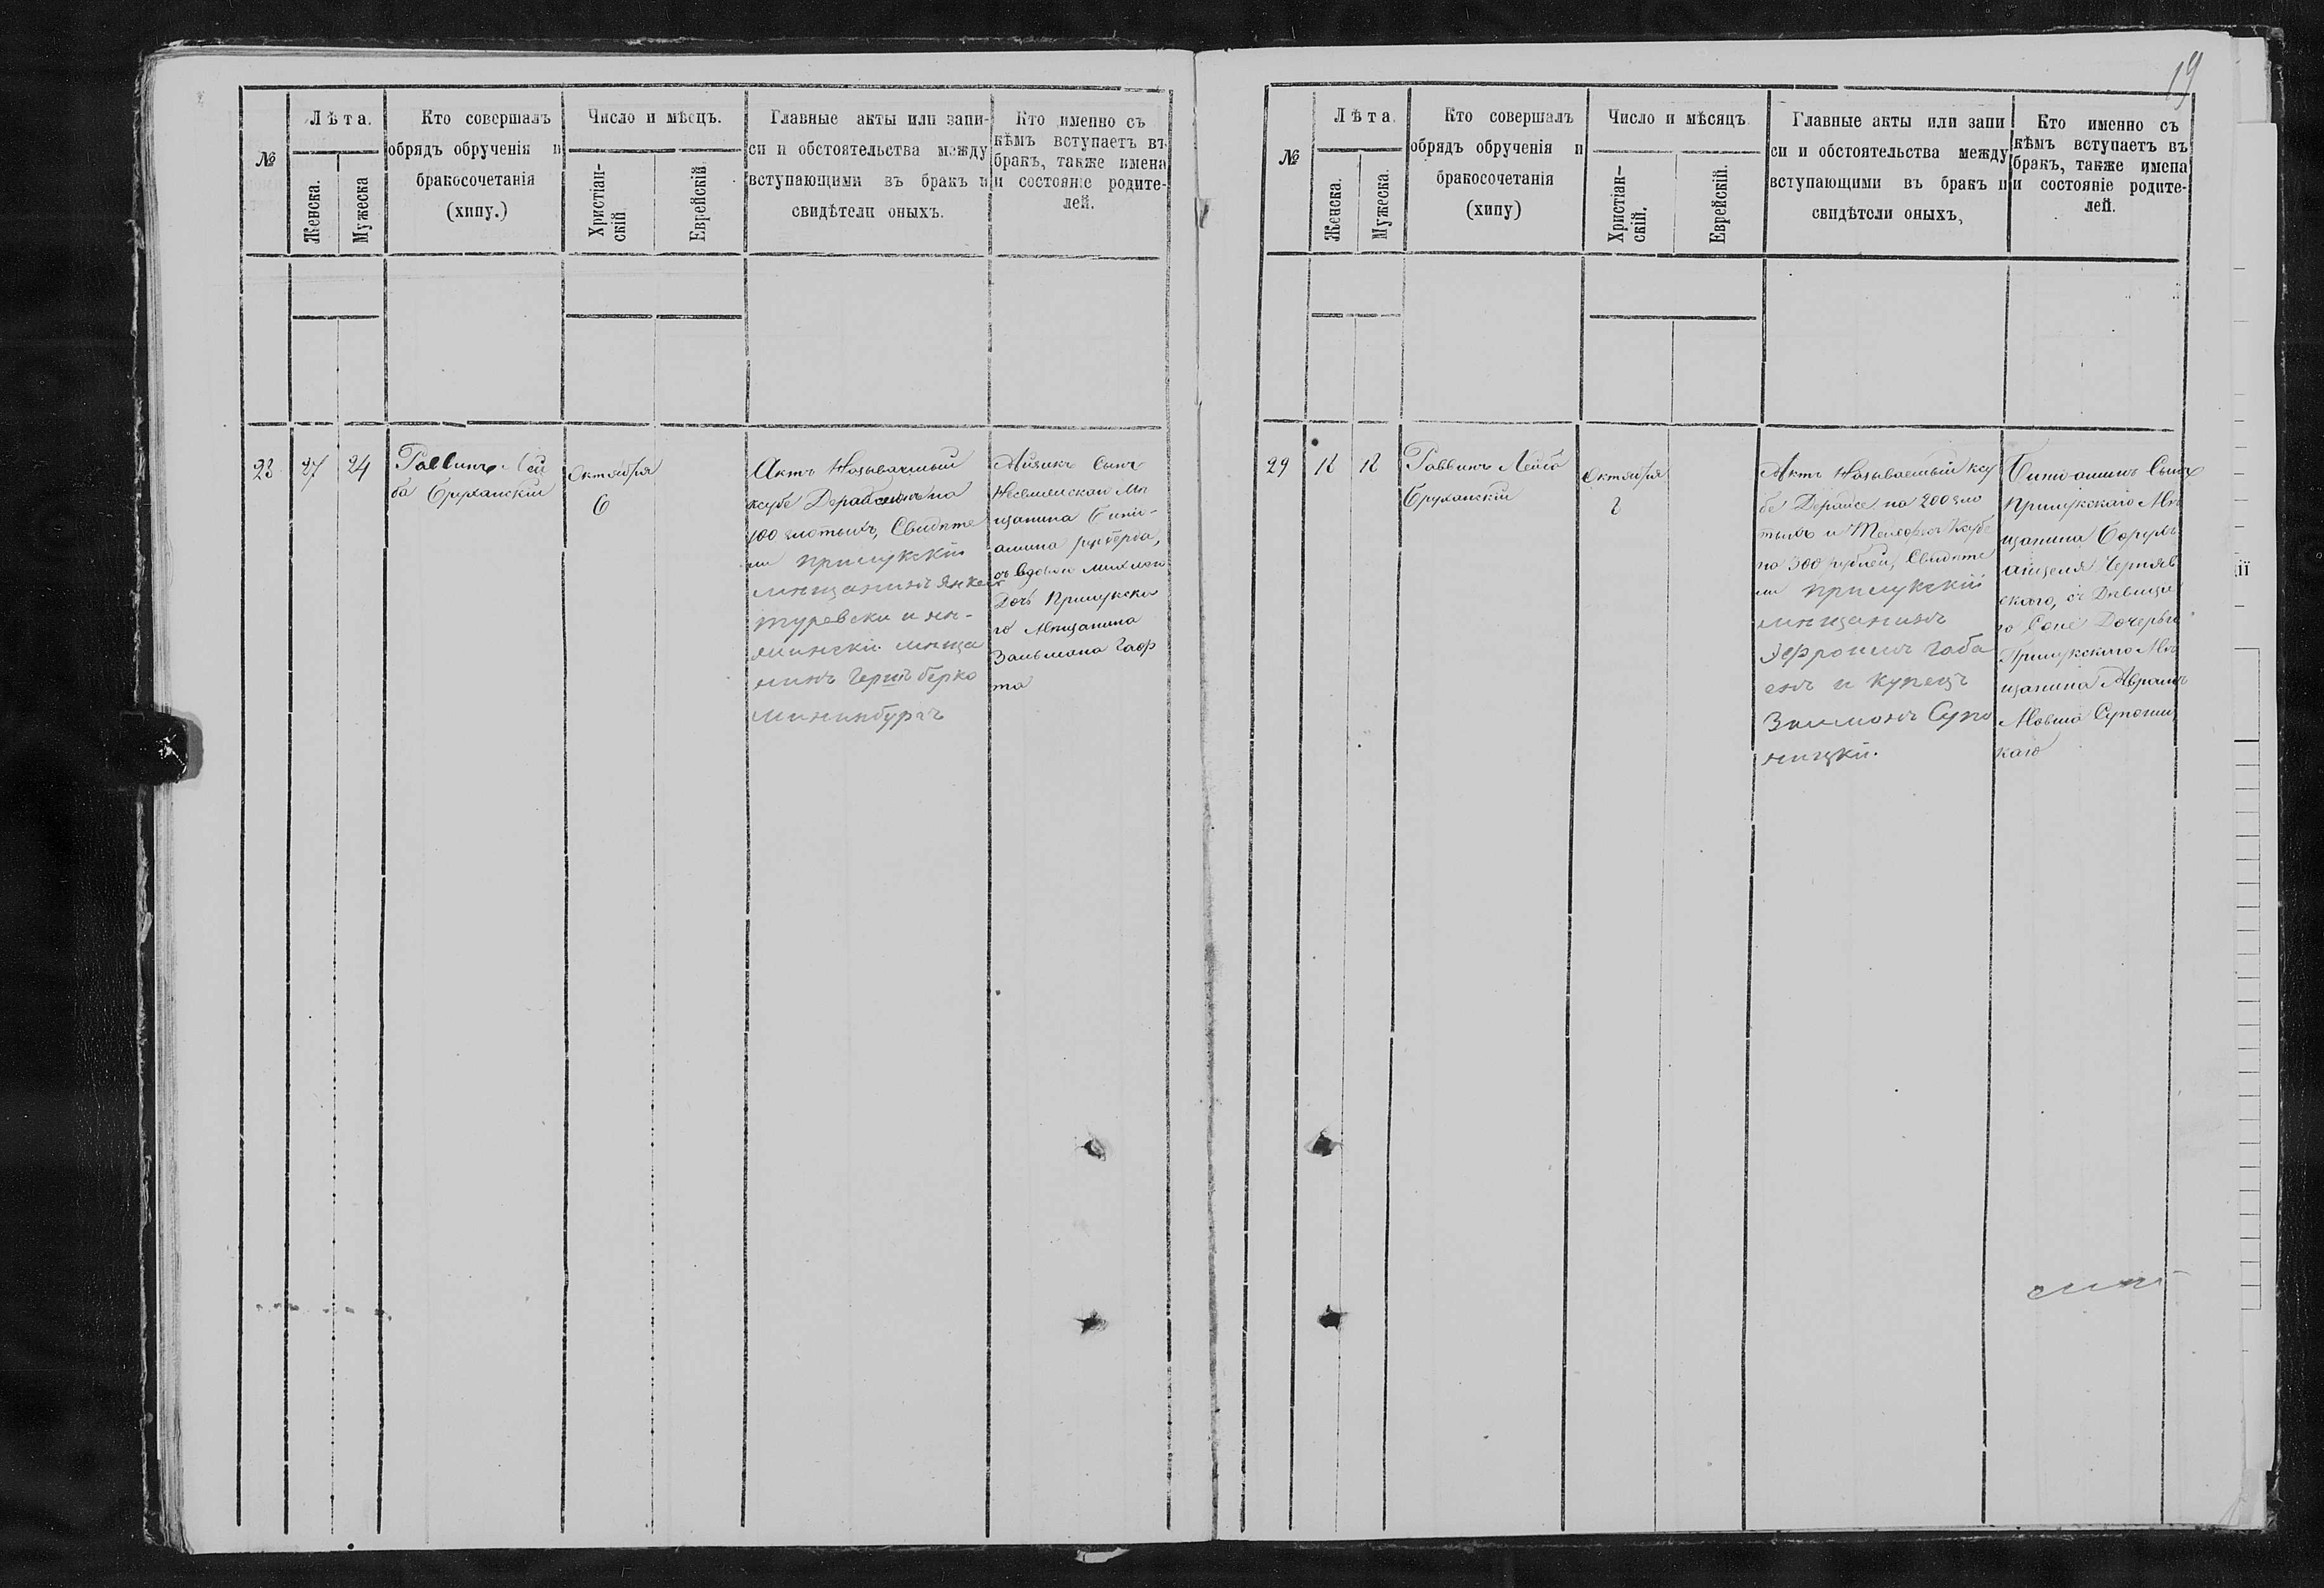 19
№
Лѣта.
Женска.
Мужеска
Кто совершалъ
обрядъ обрученія и
бракосочетанія
(хипу.)
Число и мѣсцъ.
Христіан-
скій
Еврейскій
Главные акты или запи-
си и обстоятельства между
вступающими въ бракъ и
свидѣтели оныхъ.
Кто именно съ
кѣмъ вступаетъ въ
бракъ, также имена
и состояніе родите-
лей.
23
27
24
Раввинъ Лей
ба Бруханскій
Октября
6
Актъ Называемый
ксубе на
100 злотыхъ, Свидѣте
ли прилукскій
мѣщанинъ Янкель
туревски и
мѣща
нинъ Герш берко
Айзикъ Сынъ
Мѣ
щанина Биni-
амина
съ вдовой
Дочь Прилукска
го Мѣщанина
Зальмана
та
№
Лѣта.
Женска.
Мужеска.
Кто совершалъ
обрядъ обрученія и
бракосочетанія
(хипу)
Число и мѣсяцъ
Христіан-
скій.
Еврейскій.
Главные акты или запи
си и обстоятельства между
вступающими въ бракъ и
свидѣтели оныхъ,
Кто именно съ
кѣмъ вступаетъ въ
бракъ, также имена
и состояніе родите-
лей.
29
18
18
Раввинъ Лейба
Бруханскій
Октября
Актъ Называемый ксу
бе Дерайсе на 200 зло
тыхъ и Ксубе
на 300 рублей, Свидѣте
ли прилукскій
мѣщанинъ
Эфроимъ Габа
енъ и купецъ
Зилмонъ Супо
ницкій.
Биніоминъ Сынъ
Прилукскаго Мѣ
щанина Борухъ
Анцеля Черняв
скаго, съ Дѣвице
ю Соне Дочерью
Прилукскаго Мѣ
щанина Аврамъ
Мовша Супониц
каго